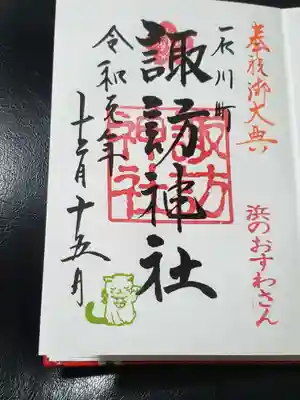 奉祝御大典
浜のおすわさん
石川町
諏訪神社
諏訪神社
令和元年
十二月十五日